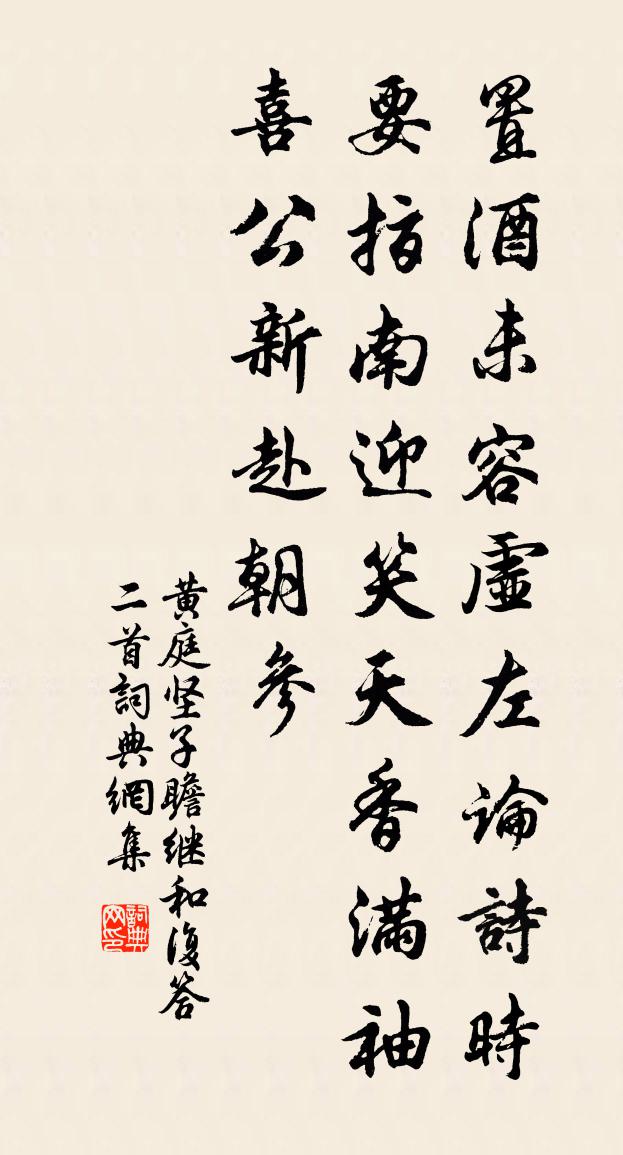 置酒未容虛左論詩時
要指南迎笑天香滿袖
喜公新赴朝參
黄庭坚子瞻继和復答
二首詞典網集
詞典網印